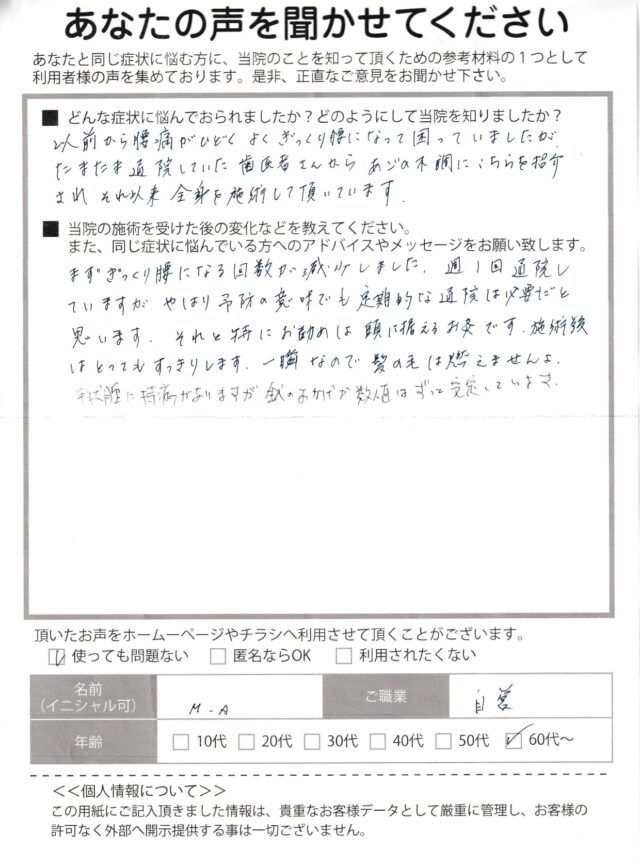 あなたの声を聞かせてください
あなたと同じ症状に悩む方に、当院のことを知って頂くための参考材料の1つとして
利用者様の声を集めております。是非、正直なご意見をお聞かせ下さい。
■ どんな症状に悩んでおられましたか？どのようにして当院を知りましたか？
以前から腰痛がひどく よくぎっくり腰になって困っていましたが、
たまたま通院していた 歯医者さんから あごの不調にこちらを紹介
され それ以来 全身を施術して頂いています。
■ 当院の施術を受けた後の変化などを教えてください。
また、同じ症状に悩んでいる方へのアドバイスやメッセージをお願い致します。
まずぎっくり腰になる回数が減少しました。週1回通院し
ていますが やはり予防の意味でも定期的な通院は必要だと
思います。それと特にお勧めは頭に据えるお灸です。施術後
はとってもすっきりします。一瞬なので髪の毛は燃えませんよ。
甲状腺に持病がありますが 鍼のおかげか数値はずっと安定しています。
頂いたお声をホームーページやチラシへ利用させて頂くことがございます。
☑ 使っても問題ない □ 匿名ならOK □ 利用されたくない
名前
（イニシャル可） M-A ご職業 自営
年齢 □ 10代 □ 20代 □ 30代 □ 40代 □ 50代 ☑ 60代～
＜＜個人情報について＞＞
この用紙にご記入頂きました情報は、貴重なお客様データとして厳重に管理し、お客様の
許可なく外部へ開示提供する事は一切ございません。